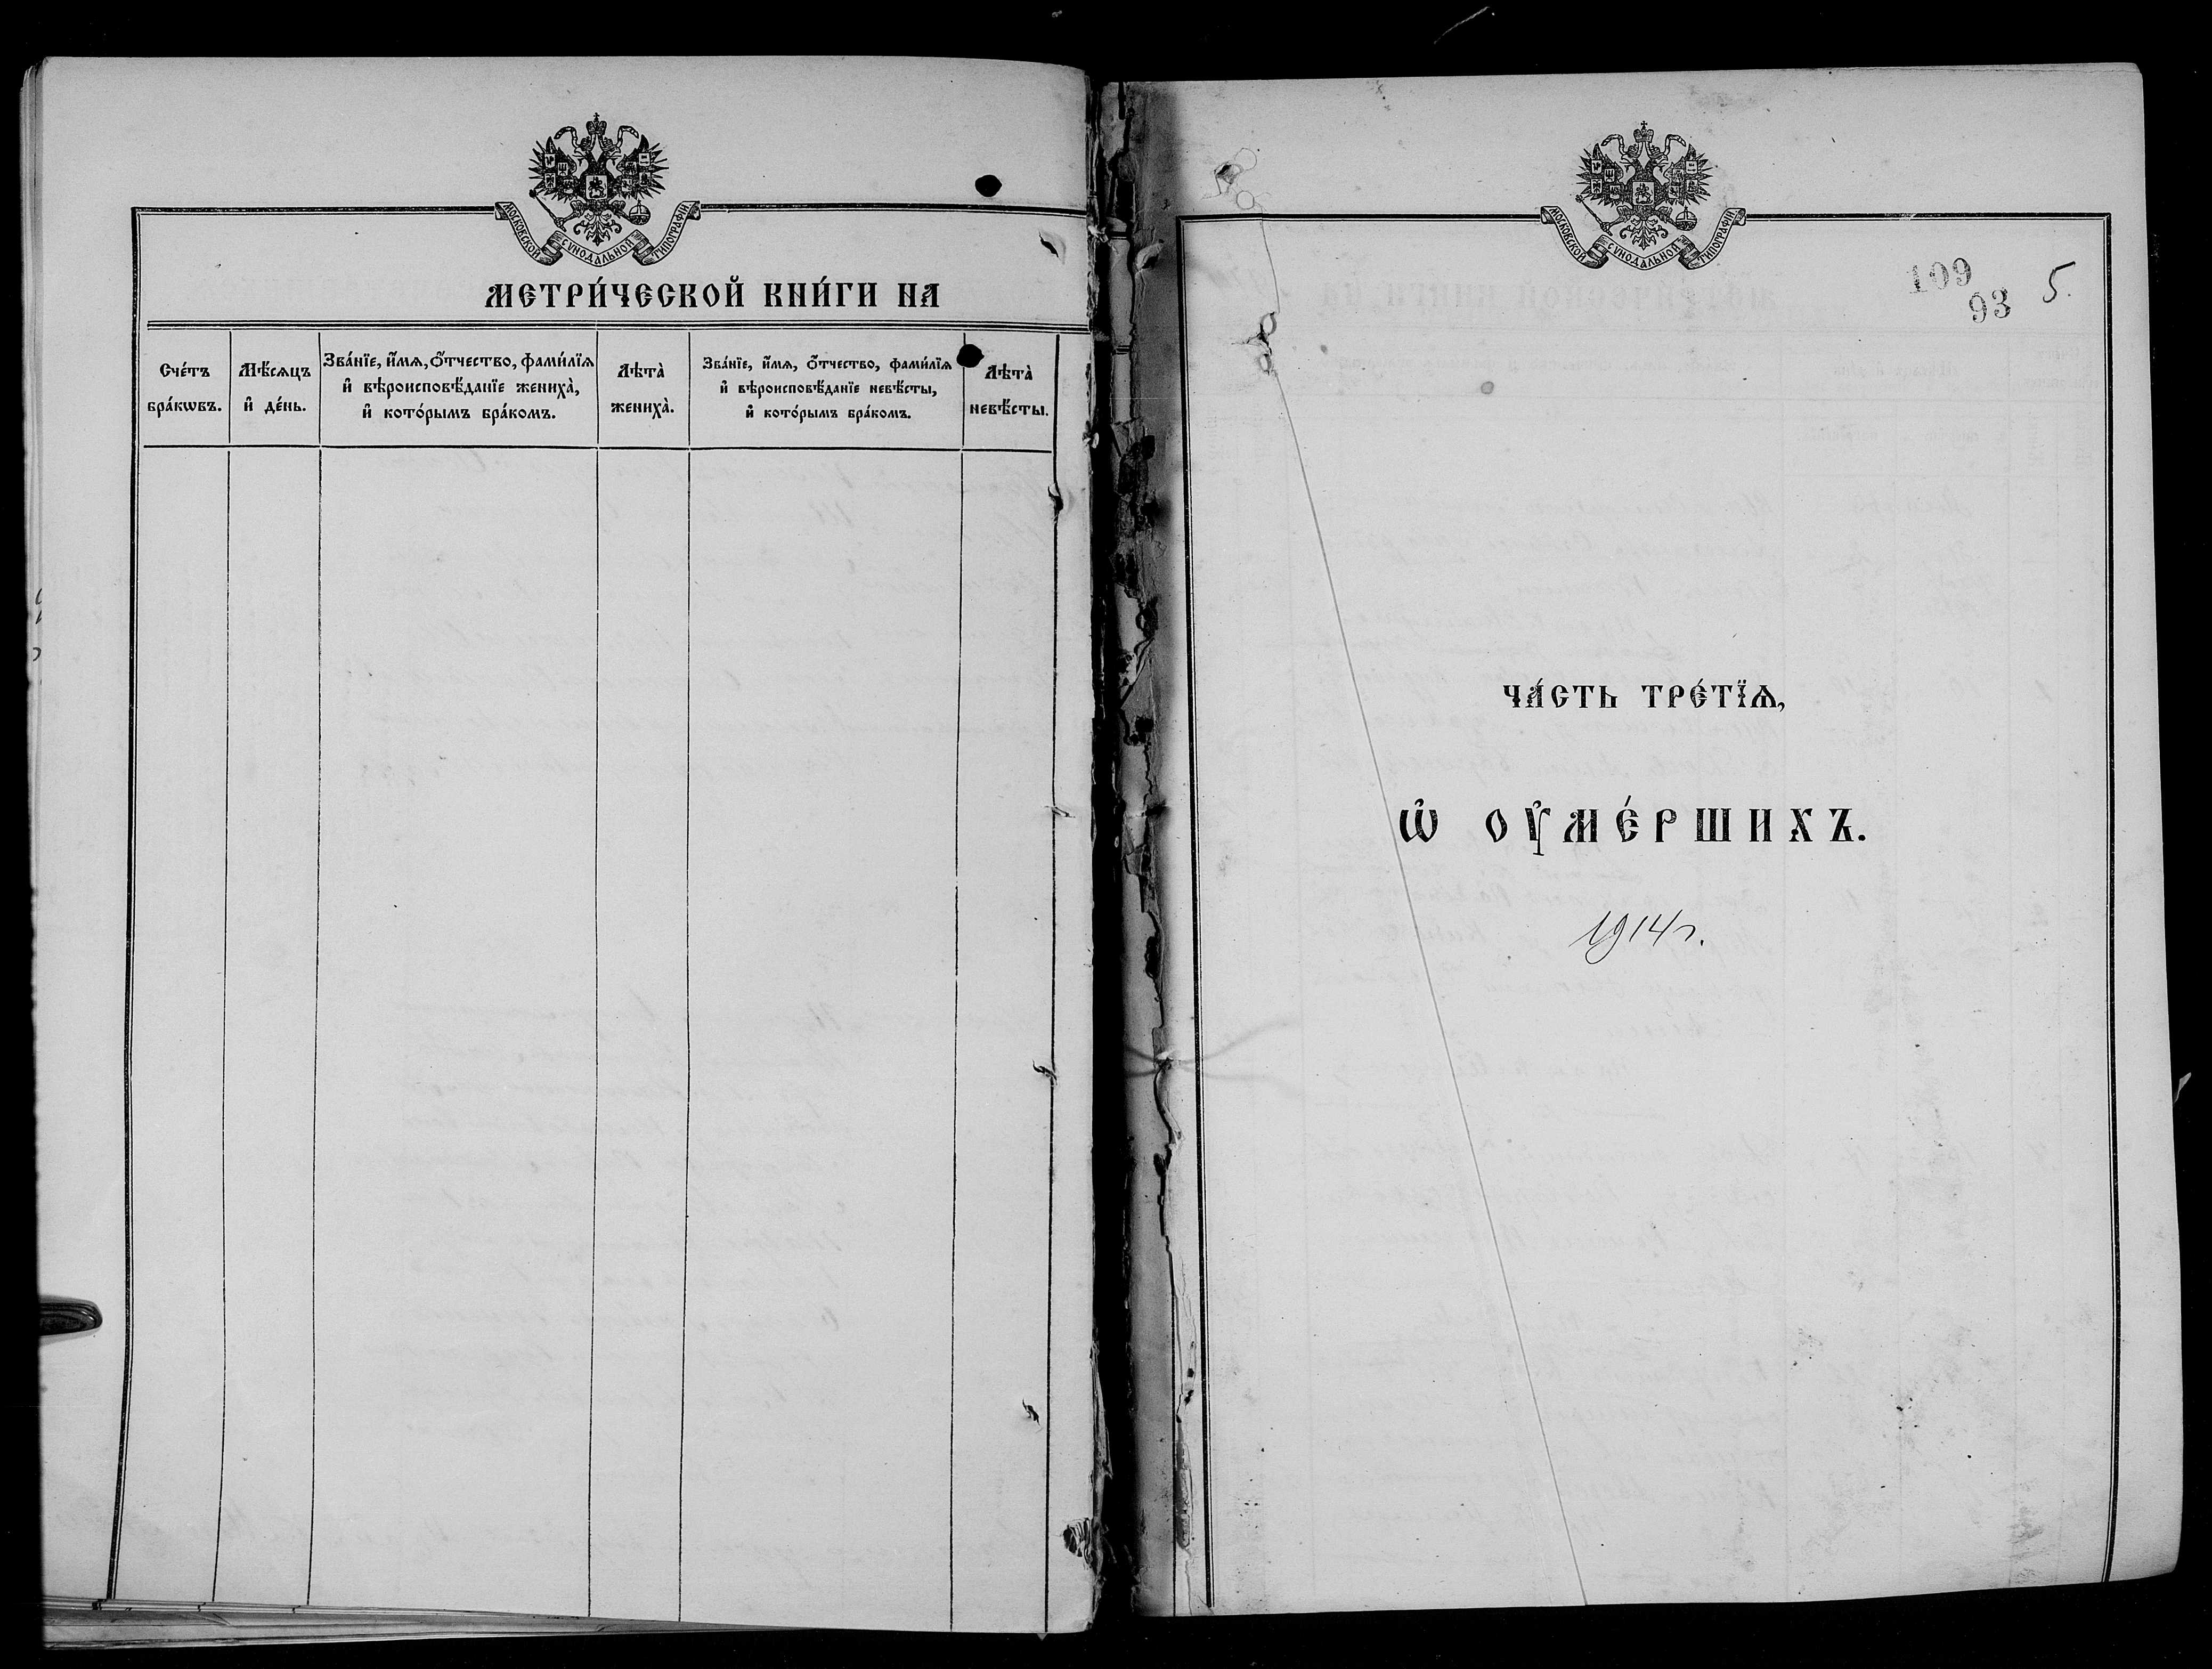 МОСКОВСКОЙ СѴНОДАЛЬНОЙ ТИПОГРАФІИ
МЕТРИ́ЧЕСКОЙ КНИ́ГИ НА
Сче́тъ
бра́кѡвъ.
Мѣ́сѧцъ
и҆ де́нь.
Зва́нїе, и҆́мѧ, ѻ҆́тчество, фами́лїѧ
и҆ вѣроисповѣ́данїе жениха̀,
и҆ кото́рымъ бра́комъ.
Лѣта̀
жениха̀.
Зва́нїе, и҆́мѧ, ѻ҆́тчество, фами́лїѧ
и҆ вѣроисповѣ́данїе невѣ́сты,
и҆ кото́рымъ бра́комъ.
Лѣта̀
невѣ́сты.
МОСКОВСКОЙ СѴНОДАЛЬНОЙ ТИПОГРАФІИ
109
93
5.
ЧА́СТЬ ТРЕ́ТЇѦ,
Ѡ҆ ОУ҆МЕ́РШИХЪ.
1914 г.